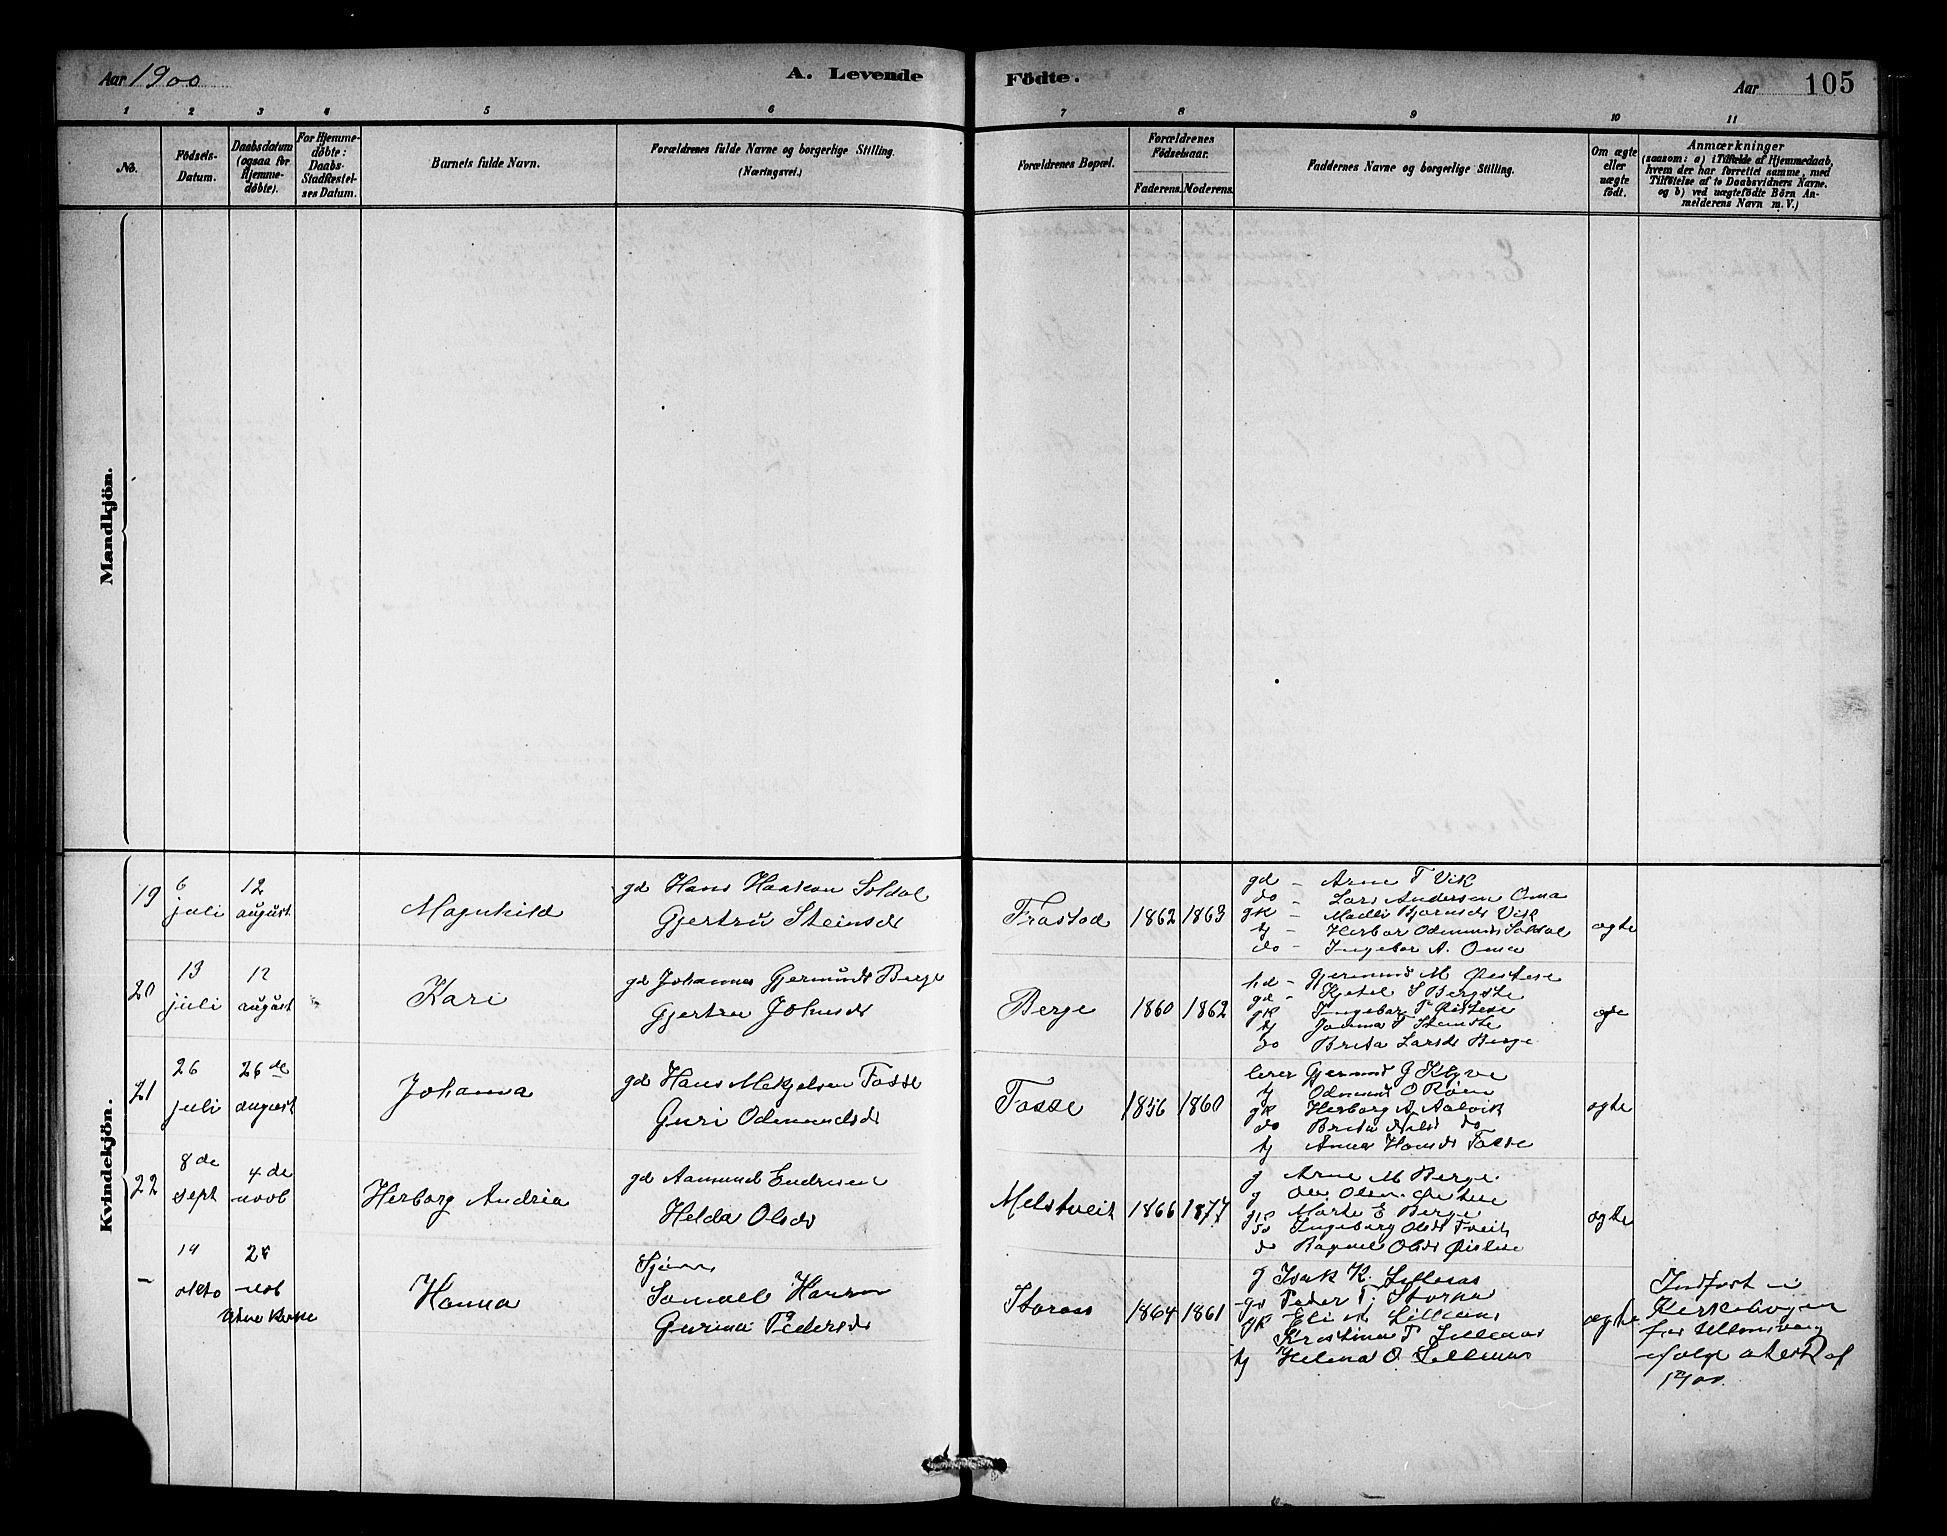 Aar 1900
A. Levende Födte.
Aar 105
1 2 3 4 5 6 7 8 9 10 11
No.
Födsels-
Datum.
Daabsdatum
(ogsaa for
Hjemme-
döbte).
For Hjemme-
döbte:
Daabs-
Stadfæstel-
ses Datum.
Barnets fulde Navn.
Forældrenes fulde Navne og borgerlige Stilling.
(Næringsvei.)
Forældrenes Bopæl.
Forældrenes
Födselsaar.
Faderens. Moderens.
Faddernes Navne og borgerlige Stilling.
Om ægte
eller
uægte
födt.
Anmærkninger
(saasom: a) i Tilfælde af Hjemmedaab,
hvem der har forrettet samme, med
Tilföielse af to Daabsvidners Navne.
og b) ved uægtefödte Börn An-
melderens Navn m. V.)
Mandkjön.
Kvindekjön.
19
6
juli
12
august
Magnhild
gd Hans Haakon Soldal
Gjertru Steinsdr
Frøstod
1862 1863
gd - Arne T Vik
do - Lars Andersen Oma
gk - Madli Bjornsdr Vik
tj - Herbor Odmundsdr Soldal
do - Ingebor A. Oma
ægte
20
13
juli
12
august
Kari
gd Johannes Gjermunds Berge
Gjertru Johnsdr
Berge
1860 1862
hd - Gjermund M Øistese
gd - Kjetel S Berge
gk Ingebor T Øistese
tj
do Brita Larsdr Berge
21
26
juli
26 de
august
Johanna
gd Hans Mikjelsen Fosse
Guri Odmundsdr
Fosse
1856 1860
lerer Gjermund J Klyve
tj Odmund O Røen
gk Herborg A Aalvik
do Brita Nelsd do
tj Anna Hansdr Fosse
ægte
22
8 de
sept
4 de
novb
Herborg Andrea
gd Aamund Endresen
Helda Olsdr
Melstveit
1866 1877
g Arne M Berge
g Ole Olsen Øistese
gk Marte E Berge
do Ingeborg Olsdr Tveit
d Ragnel Olsdr Øistese
ægte
-
14
okto
28
nob
Utne Kirke
Hanna
Samuel Hansen
Gurina Pedersdr
Storaas
1864 1861
g Isak K. Lilleaas
gd Peder T.
gk Eli M Lilleaas
Kristina T Lilleaas
tj Helena O. Lilleaas
ægte
Indført i
Kirkebogen
for Ullensvang
ifølge attest af
1900